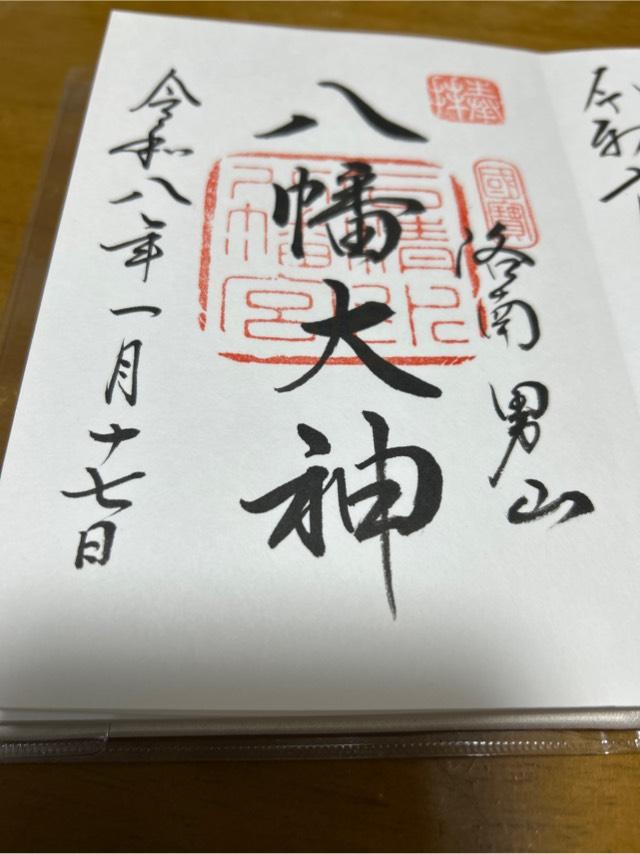 奉拝
國寶
洛南 男山
八幡大神
石清水八幡宮
令和八年一月十七日